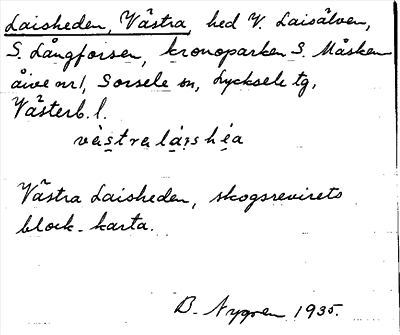 Laisheden, Västra, hed V. Laisälven,
S. Långforsen, kronoparken S. Måsken
åive nr 1, Sorsele sn, Lycksele tg,
Västerb. l.
västra láishéa
Västra Laisheden, skogsrevirets
block-karta.
B. Nygren 1935.